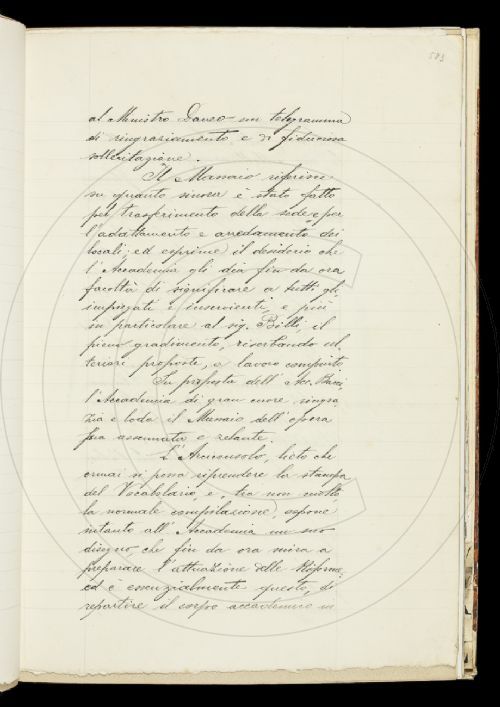 583
al Ministro Daneo un telegramma
di ringraziamento e di fiduciosa
sollecitazione.
Il Massaio riferisce
su quanto sinora è stato fatto
pel trasferimento della sede e per
l'adattamento e arredamento dei
locali; ed esprime il desiderio che
l'Accademia gli dia fin da ora
facoltà di significare a tutti gli
impiegati e inservienti, e più
in particolare al sig. Billi, il
pieno gradimento, riserbando ul-
teriori proposte, a lavoro compiuto.
Su proposta dell'Acc. Bacci,
l'Accademia di gran cuore ringra-
zia e loda il Massaio dell'opera
sua assennata e zelante.
L'Arciconsolo, lieto che
ormai si possa riprendere la stampa
del Vocabolario, e, tra non molto
la normale compilazione, espone
intanto all'Accademia un suo
disegno, che fin da ora mira a
preparare l'attuazione delle Riforme;
ed è essenzialmente questo, di
repartire il corpo accademico in